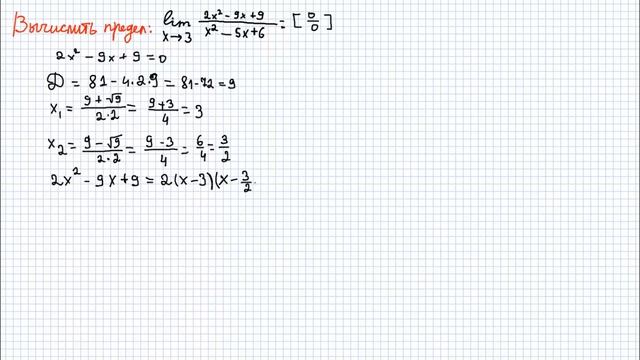 Вычислить предел: lim x→3 (2x² - 9x + 9)/(x² - 5x + 6) = [0/0]
2x² - 9x + 9 = 0
D = 81 - 4·2·9 = 81 - 72 = 9
x₁ = (9 + √9)/(2·2) = (9+3)/4 = 3
x₂ = (9 - √9)/(2·2) = (9-3)/4 = 6/4 = 3/2
2x² - 9x + 9 = 2(x-3)(x - 3/2